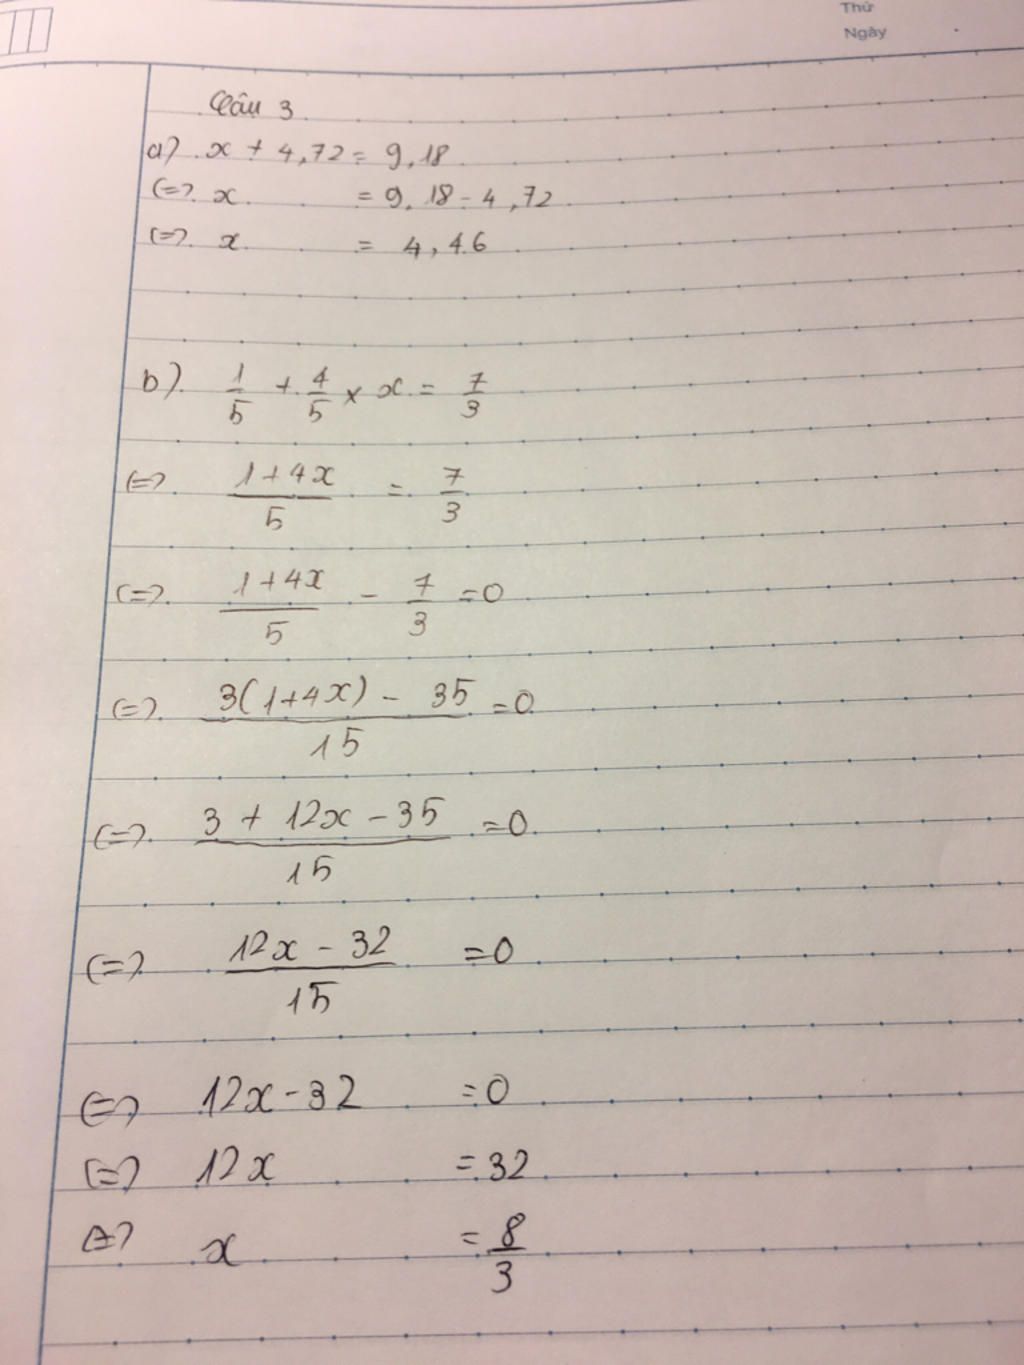 Thứ
Ngày
Câu 3
a) x + 4,72 = 9,18
(=) x = 9,18 - 4,72
(=) x = 4,46
b) 1/5 + 4/5 × x = 7/3
(=) (1+4x)/5 = 7/3
(=) (1+4x)/5 - 7/3 = 0
(=) (3(1+4x) - 35)/15 = 0
(=) (3 + 12x - 35)/15 = 0
(=) (12x - 32)/15 = 0
(=) 12x - 32 = 0
(=) 12x = 32
(=) x = 8/3